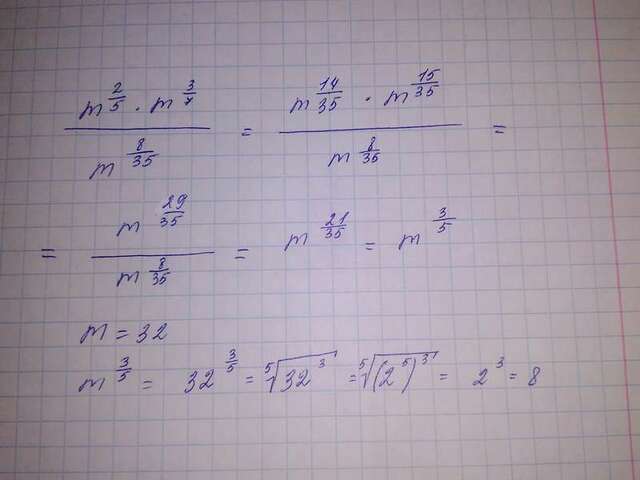 m^(2/5) · m^(3/7) / m^(8/35) = m^(14/35) · m^(15/35) / m^(8/35) =
= m^(29/35) / m^(8/35) = m^(21/35) = m^(3/5)
m = 32
m^(3/5) = 32^(3/5) = ⁵√(32³) = ⁵√((2⁵)³) = 2³ = 8